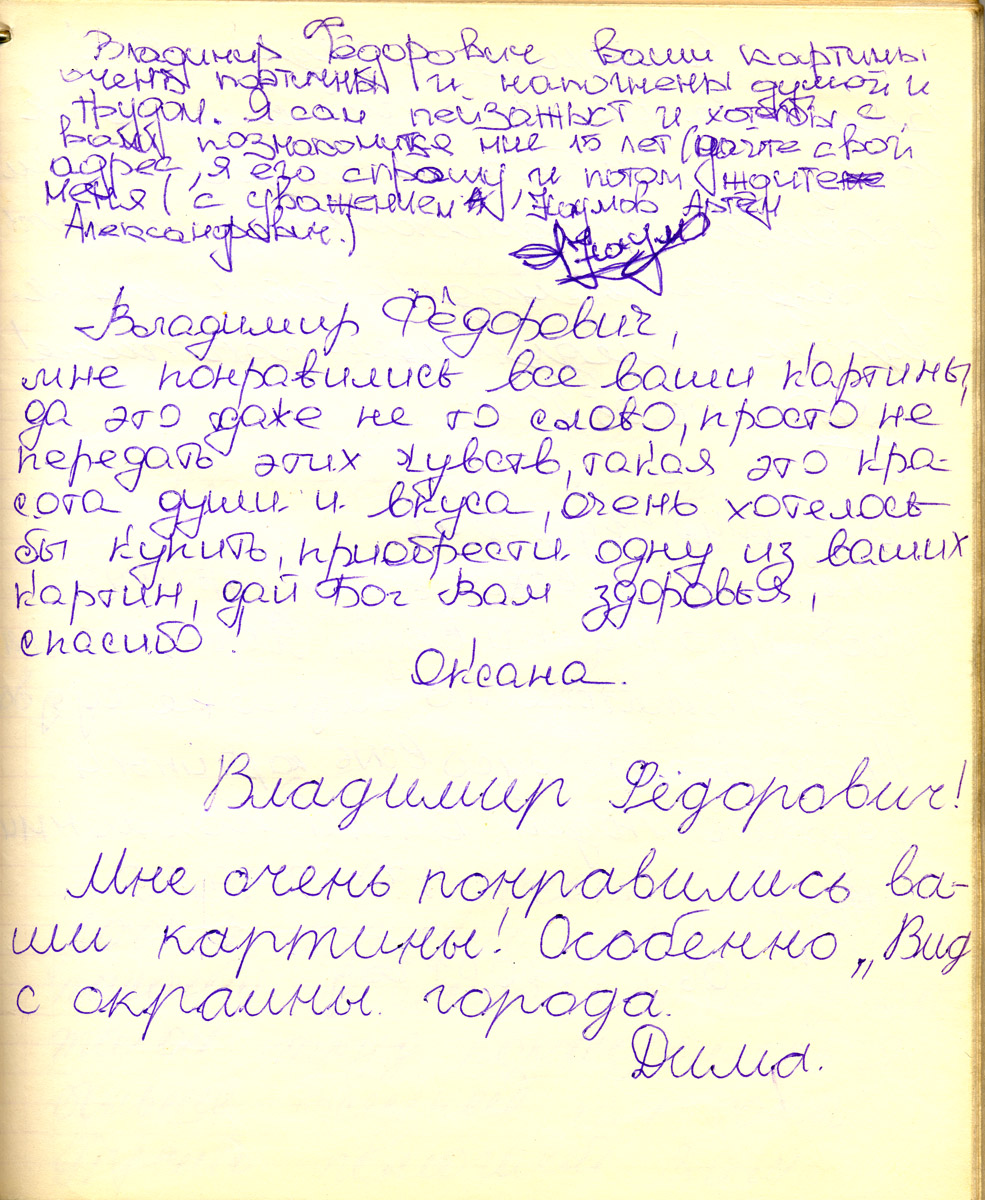 Владимир Фёдорович ваши картины
очень поэтичны и наполнены думой и
трудом. Я сам пейзажыст и хотел бы с
вами познакомится мне 15 лет (дайте свой
адрес, я его спрошу и потом ждите
меня (с уважением Наумов Артём
Александрович.)
Владимир Фёдорович,
мне понравились все ваши картины,
да это даже не то слово, просто не
передать этих чувств, такая это кра-
сота души и вкуса, очень хотелось
бы купить, приобрести одну из ваших
картин, дай Бог Вам здоровья,
спасибо!
Оксана.
Владимир Фёдорович!
Мне очень понравились ва-
ши картины! Особенно „Вид
с окраины города.
Дима.